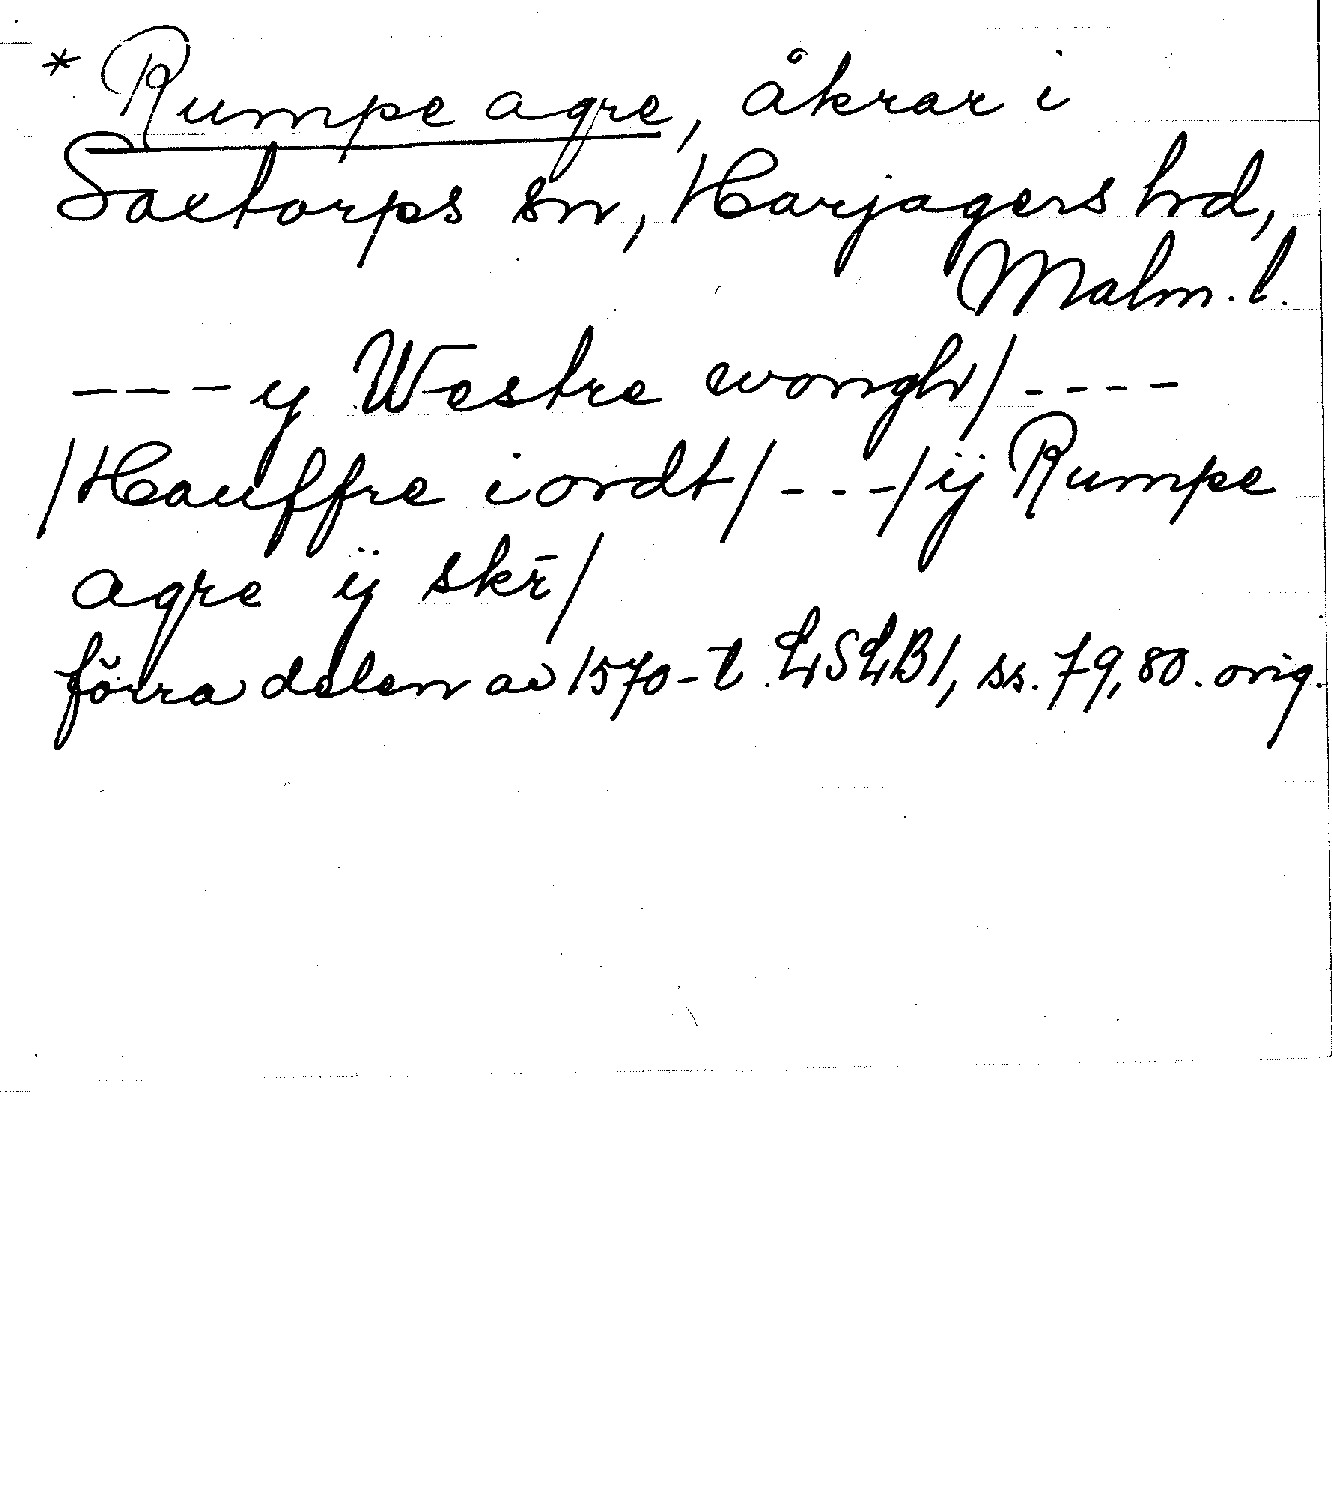 * Rumpe agre, åkrar i
Saxtorps sn, Harjagers hd,
Malm. l.
---y Westre wongh/----
/Hauffre iordt/---/ij Rumpe
agre ÿ skr̄/
förra delen av 1570-t. LSLB1, ss. 79, 80. orig.